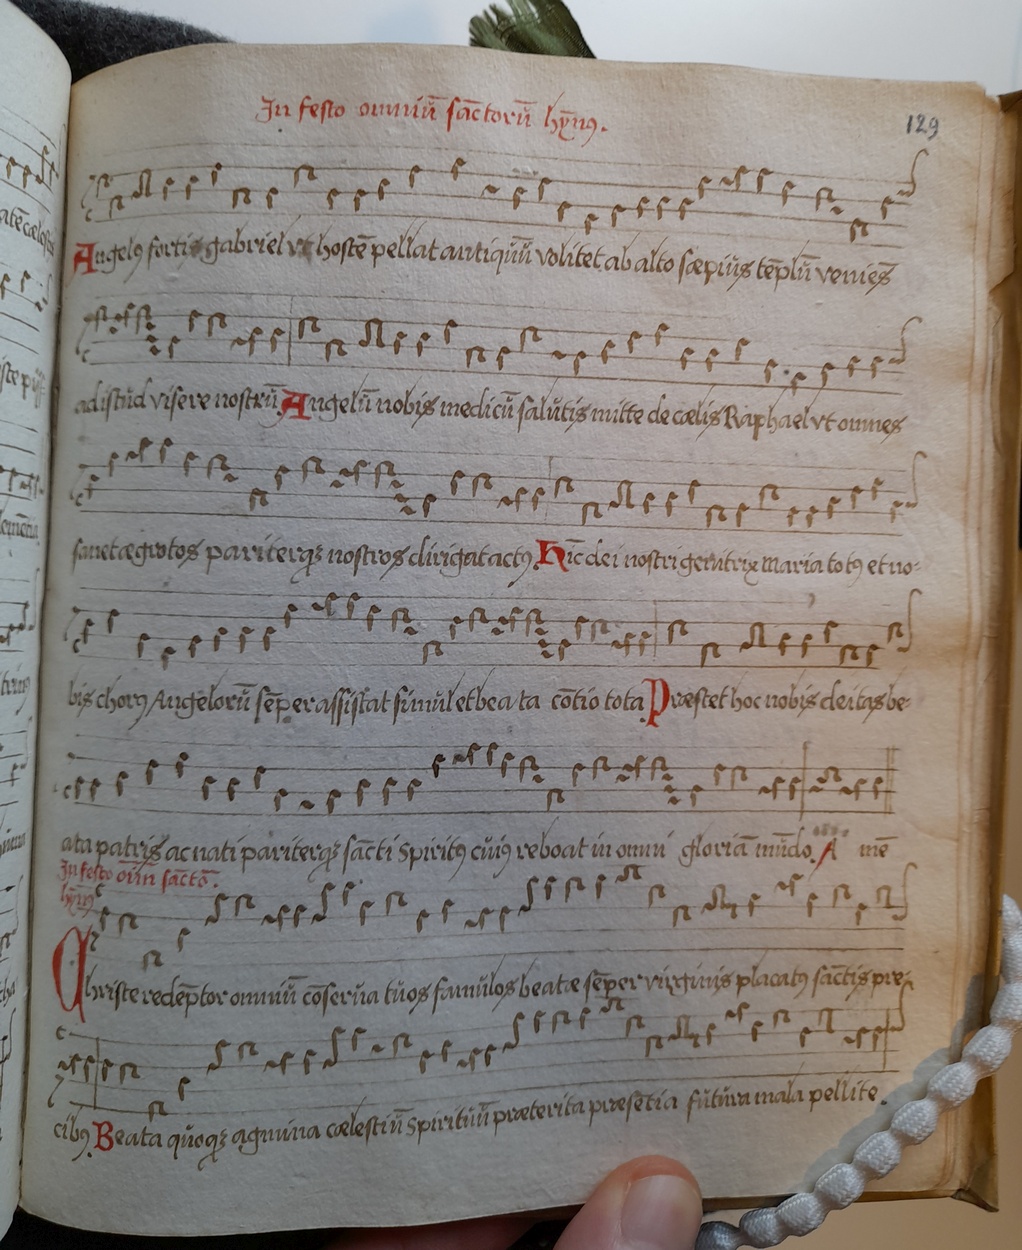 In festo omniū sāctorū hȳnꝰ.
129
Angelꝰ fortis gabriel vt hostē pellat antiquū volitet ab alto sæpius tēplū veniēs
ad istud visere nostrū Angelū nobis medicū salutis mitte de cælis Raphael vt omnes
sanet ægrotos pariterqꝫ nostros dirigat actꝰ. Hīc dei nostri genitrix maria totꝰ et no-
bis chorꝰ Angelorū sēper assistat simul et beata cōtio tota Præstet hoc nobis deitas be-
ata patris ac nati pariterqꝫ sācti spiritꝰ cuiꝰ reboat in omni gloriā mūdo. A mē
In festo oīm sāctō.
hȳnꝰ
Christe redēptor omniū cōserua tuos famulos beatæ sēper virginis placatꝰ sāctis pre-
cibꝰ. Beata quoqꝫ agmina cælestiū spirituū præterita præsētia futura mala pellite.